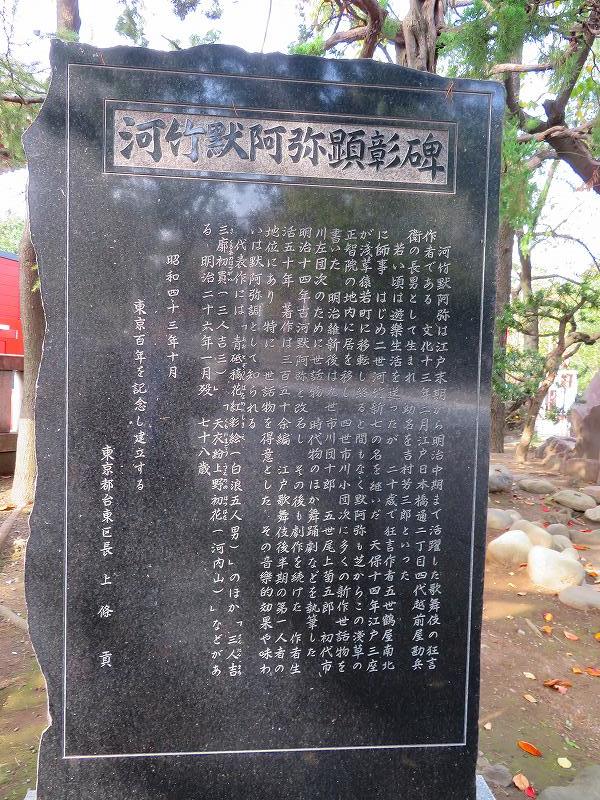 河竹黙阿弥顕彰碑
河竹黙阿弥は江戸末期から明治中期まで活躍した歌舞伎の狂言
作者である 文化十三年二月江戸日本橋通二丁目四代越前屋勘兵
衛の長男として生まれ 幼名を吉村芳三郎といった
若い頃は遊楽生活を送ったが 二十歳で狂言作者五世鶴屋南北
に師事 はじめ二世河竹新七の名を継いだ 天保十四年江戸三座
が浅草猿若町に移転し終ると間もなく黙阿弥も芝からこの浅草の
正智院の地内に居を移し 四世市川小団次に多くの新作世話物を
書いた 明治維新後は九世市川団十郎 五世尾上菊五郎 初代市
川左団次のために世話物 時代物のほか舞踊劇などを執筆した
明治十四年古河黙阿弥と改名し その後も劇作を続けた 作者生
活五十年 著作は三百五十余編 江戸歌舞伎後半期の第一人者の
地位にあり 特に 世話物を得意とした その音楽的効果や味わ
いは黙阿弥調として知られる
代表作には「青砥稿花紅彩絵(白浪五人男)」のほか「三人吉
三廓初買(三人吉三)」「天衣紛上野初花(河内山)」などがあ
る 明治二十六年一月歿 七十八歳
昭和四十三年十月
東京百年を記念し建立する
東京都台東区長 上條 貢